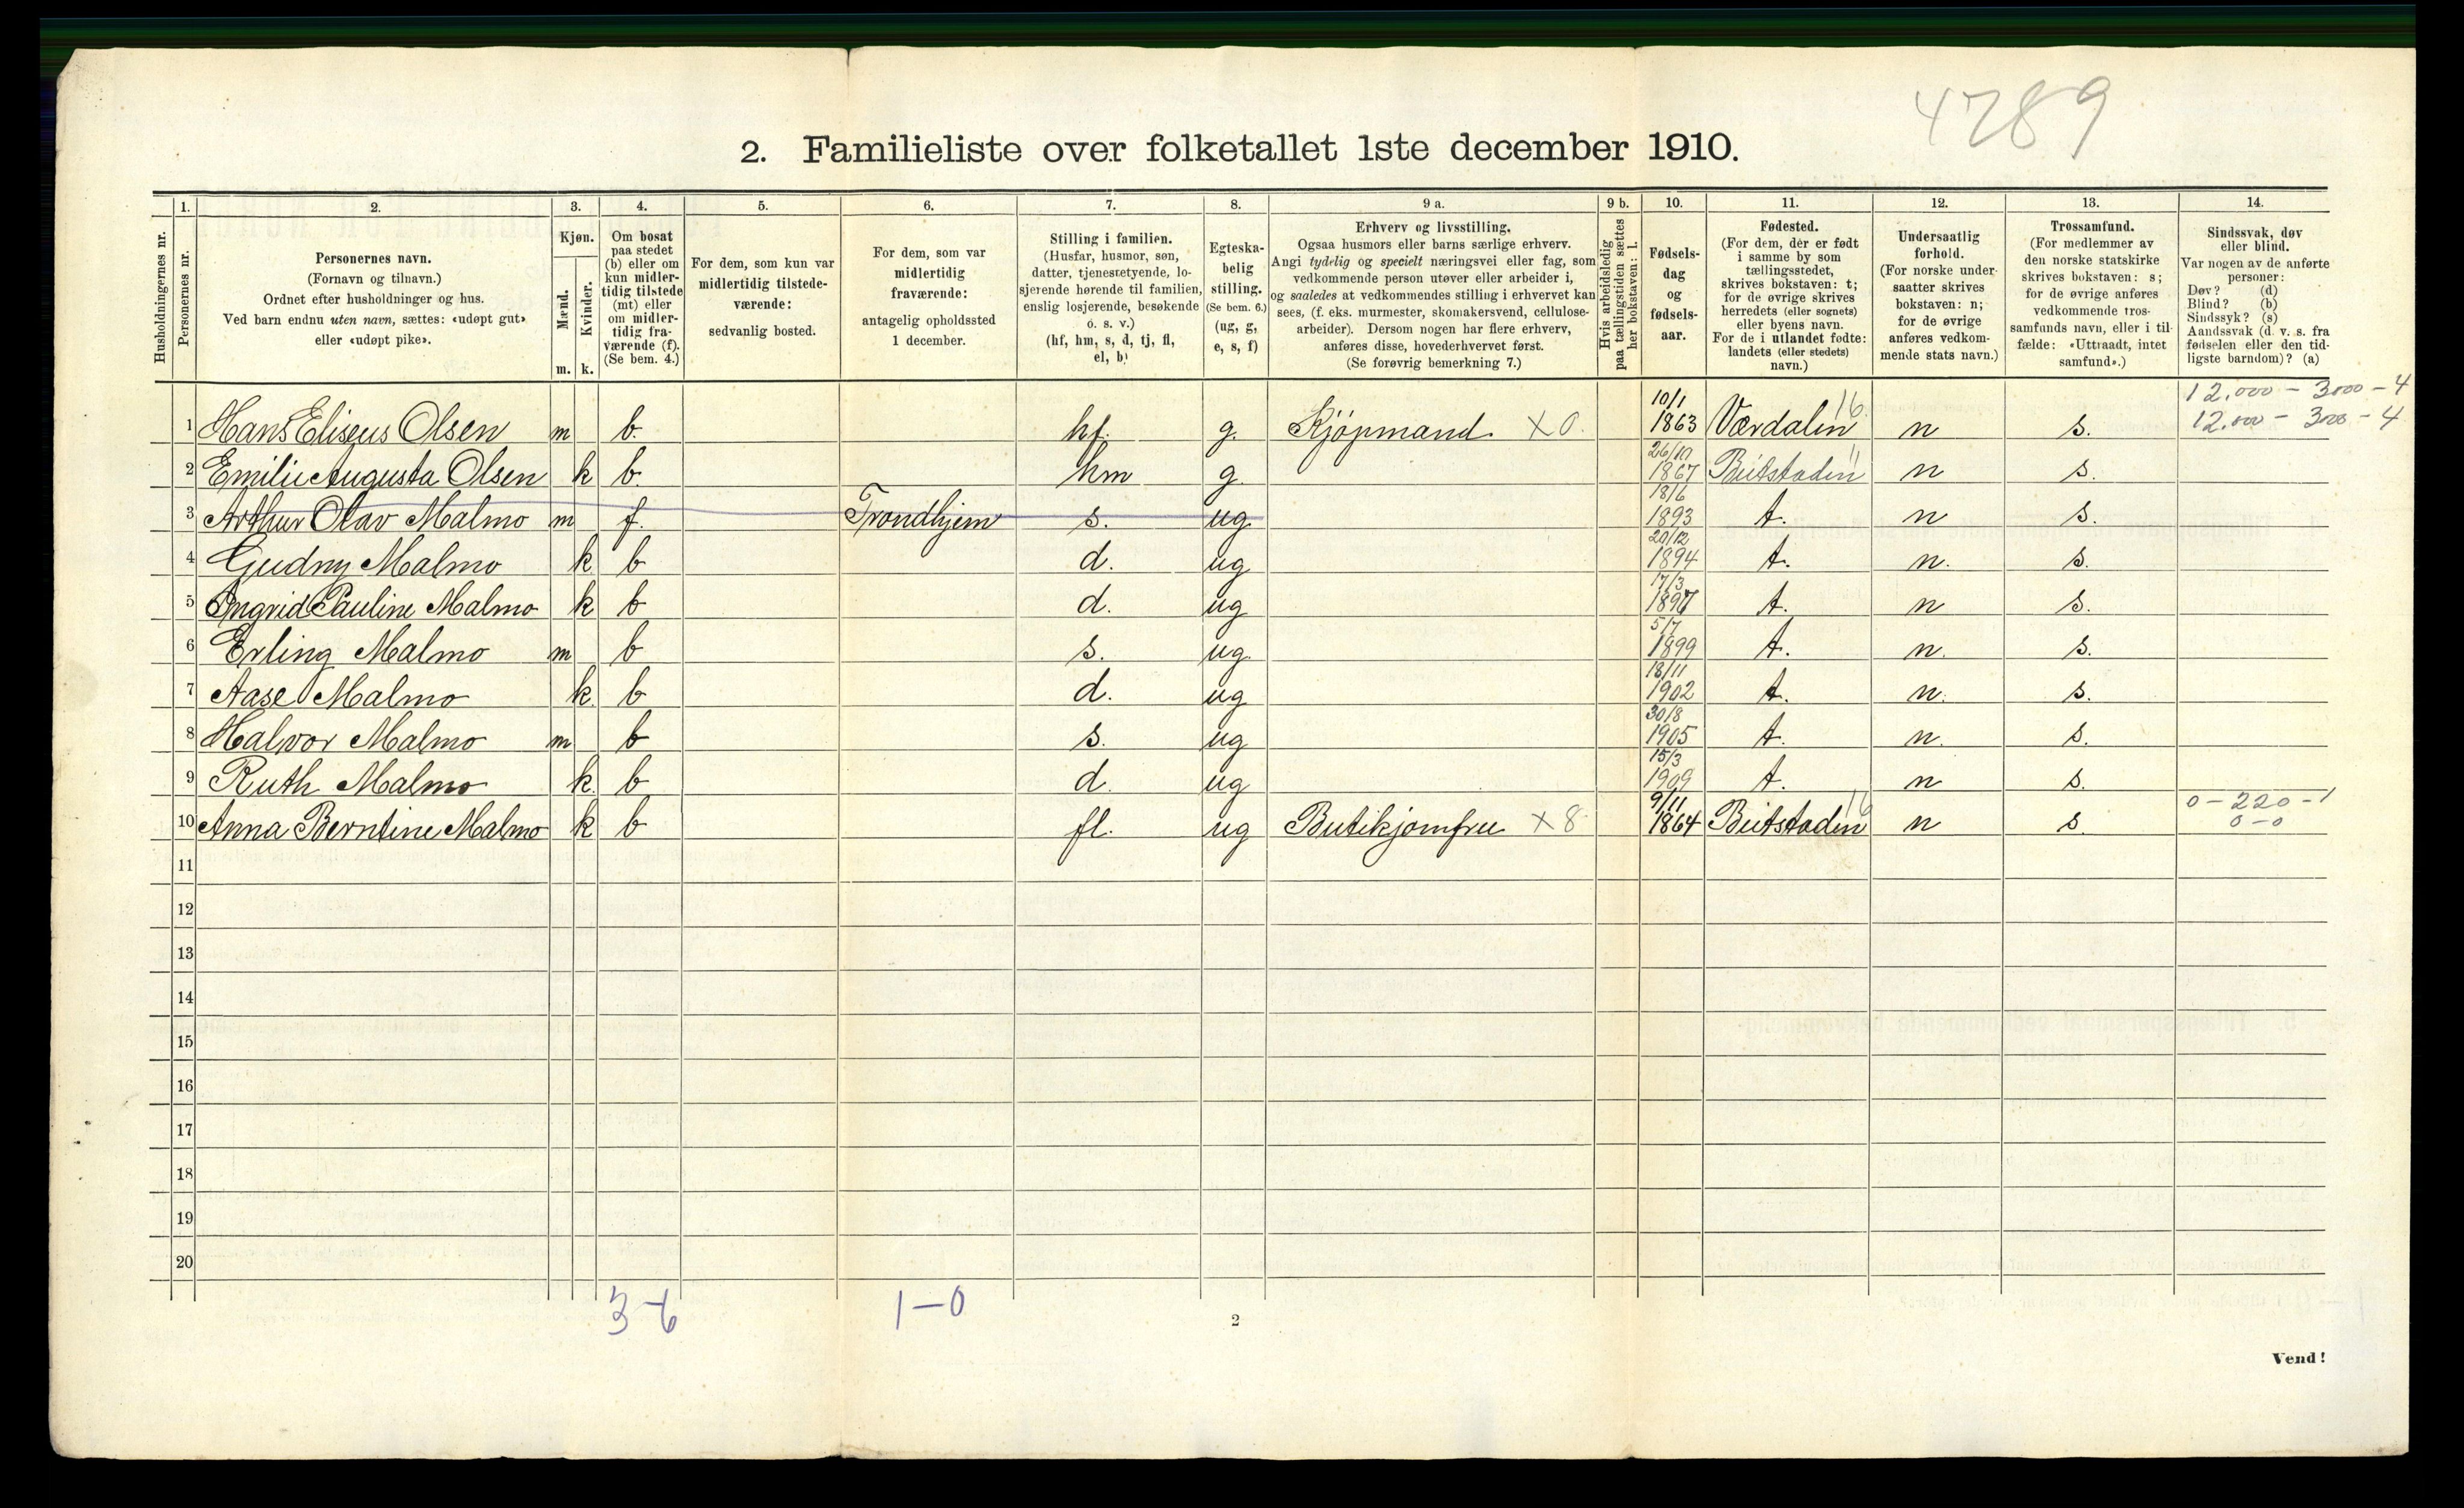 4789
2. Familieliste over folketallet 1ste december 1910.
Husholdningernes nr.
1. Personernes nr.
2. Personernes navn.
(Fornavn og tilnavn.)
Ordnet efter husholdninger og hus.
Ved barn endnu uten navn, sættes: «udøpt gut»
eller «udøpt pike».
3. Kjøn.
Mænd. Kvinder.
m. k.
4. Om bosat
paa stedet
(b) eller om
kun midler-
tidig tilstede
(mt) eller
om midler-
tidig fra-
værende (f).
(Se bem. 4.)
5. For dem, som kun var
midlertidig tilstede-
værende:
sedvanlig bosted.
6. For dem, som var
midlertidig
fraværende:
antagelig opholdssted
1 december.
7. Stilling i familien.
(Husfar, husmor, søn,
datter, tjenestetyende, lo-
sjerende hørende til familien,
enslig losjerende, besøkende
o. s. v.)
(hf, hm, s, d, tj, fl,
el, b)
8. Egteska-
belig
stilling.
(Se bem. 6.)
(ug, g,
e, s, f)
9 a. Erhverv og livsstilling.
Ogsaa husmors eller barns særlige erhverv.
Angi tydelig og specielt næringsvei eller fag, som
vedkommende person utøver eller arbeider i,
og saaledes at vedkommendes stilling i erhvervet kan
sees, (f. eks. murmester, skomakersvend, cellulose-
arbeider). Dersom nogen har flere erhverv,
anføres disse, hovederhvervet først.
(Se forøvrig bemerkning 7.)
9 b. Hvis arbeidsledig
paa tællingstiden sættes
her bokstaven: l.
10. Fødsels-
dag
og
fødsels-
aar.
11. Fødested.
(For dem, der er født
i samme by som
tællingsstedet,
skrives bokstaven: t;
for de øvrige skrives
herredets (eller sognets)
eller byens navn.
For de i utlandet fødte:
landets (eller stedets)
navn.)
12. Undersaatlig
forhold.
(For norske under-
saatter skrives
bokstaven: n;
for de øvrige
anføres vedkom-
mende stats navn.)
13. Trossamfund.
(For medlemmer av
den norske statskirke
skrives bokstaven: s;
for de øvrige anføres
vedkommende tros-
samfunds navn, eller i til-
fælde: «Uttraadt, intet
samfund».)
14. Sindssvak, døv
eller blind.
Var nogen av de anførte
personer:
Døv? (d)
Blind? (b)
Sindssyk? (s)
Aandssvak (d. v. s. fra
fødselen eller den tid-
ligste barndom)? (a)
12.000 - 3000 - 4
1 Hans Eliseus Olsen m b. hf. g. Kjøpmand X 0. 10/1 1863 Værdalen 16 n s. 12.000 - 3000 - 4
2 Emilie Augusta Olsen k b. hm g. 26/10 1867 Beitstaden 11 n s.
3 Arthur Olav Malmo m f. Trondhjem s. ug 18/6 1893 t. n s.
4 Gudny Malmo k b d. ug 20/12 1894 t. n. s.
5 Ingrid Pauline Malmo k b d. ug 17/3 1897 t. n s.
6 Erling Malmo m b s. ug 5/7 1899 t. n. s.
7 Aase Malmo k b d. ug 18/11 1902 t. n. s.
8 Halvor Malmo m b s. ug 30/8 1905 t. n. s.
9 Ruth Malmo k b d. ug 15/3 1909 t. n s.
10 Anna Berntine Malmo k b fl. ug Butikjomfru X 8 9/11 1864 Beitstaden 16 n s. 0 - 220 - 1
0 - 0
11
12
13
14
15
16
17
18
19
20
3-6 1-0
2
Vend!